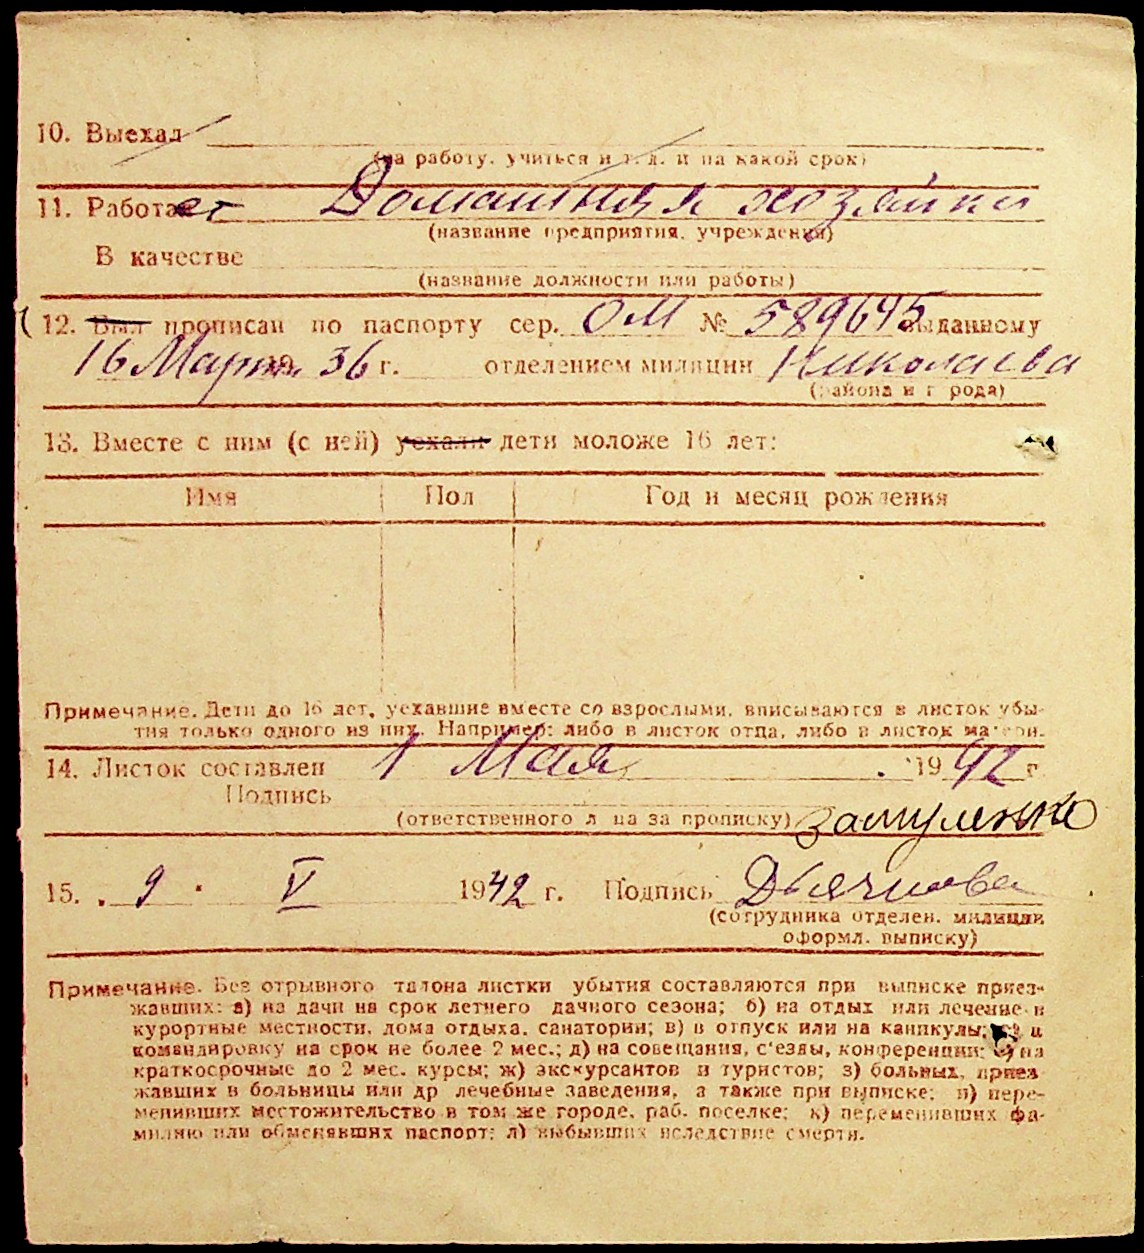 10. Выехал
(на работу, учиться и т. д. и на какой срок)
11. Работает Домашняя хозяйка
(название предприятия, учреждения)
В качестве
(название должности или работы)
12. Был прописан по паспорту сер. ОМ № 589645 выданному
16 Марта 36 г. отделением милиции Николаева
(района и города)
13. Вместе с ним (с ней) уехали дети моложе 16 лет:
Имя Пол Год и месяц рождения
Примечание. Дети до 16 лет, уехавшие вместе со взрослыми, вписываются в листок убы-
тия только одного из них. Например: либо в листок отца, либо в листок матери.
14. Листок составлен 1 Мая 1942 г
Подпись
(ответственного лица за прописку)
15. 9 V 1942 г. Подпись
(сотрудника отделен. милиции
оформл. выписку)
Примечание. Без отрывного талона листки убытия составляются при выписке приез-
жавших: а) на дачи на срок летнего дачного сезона; б) на отдых или лечение в
курортные местности, дома отдыха, санатории; в) в отпуск или на каникулы; г) в
командировку на срок не более 2 мес.; д) на совещания, с'езды, конференции; е) на
краткосрочные до 2 мес. курсы; ж) экскурсантов и туристов; з) больных, приез
жавших в больницы или др лечебные заведения, а также при выписке: и) пере-
менивших местожительство в том же городе, раб. поселке; к) переменивших фа-
милию или обменявших паспорт; л) выбывших вследствие смерти.